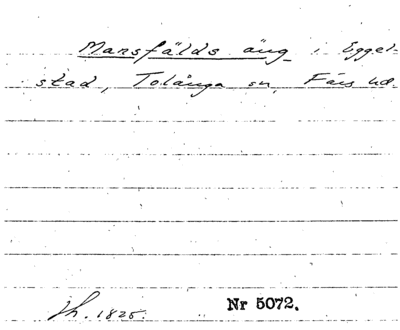 Marsfälds äng i Eggel-
stad, Tolånga sn, Färs hd.
Sk. 1825.
Nr 5072.